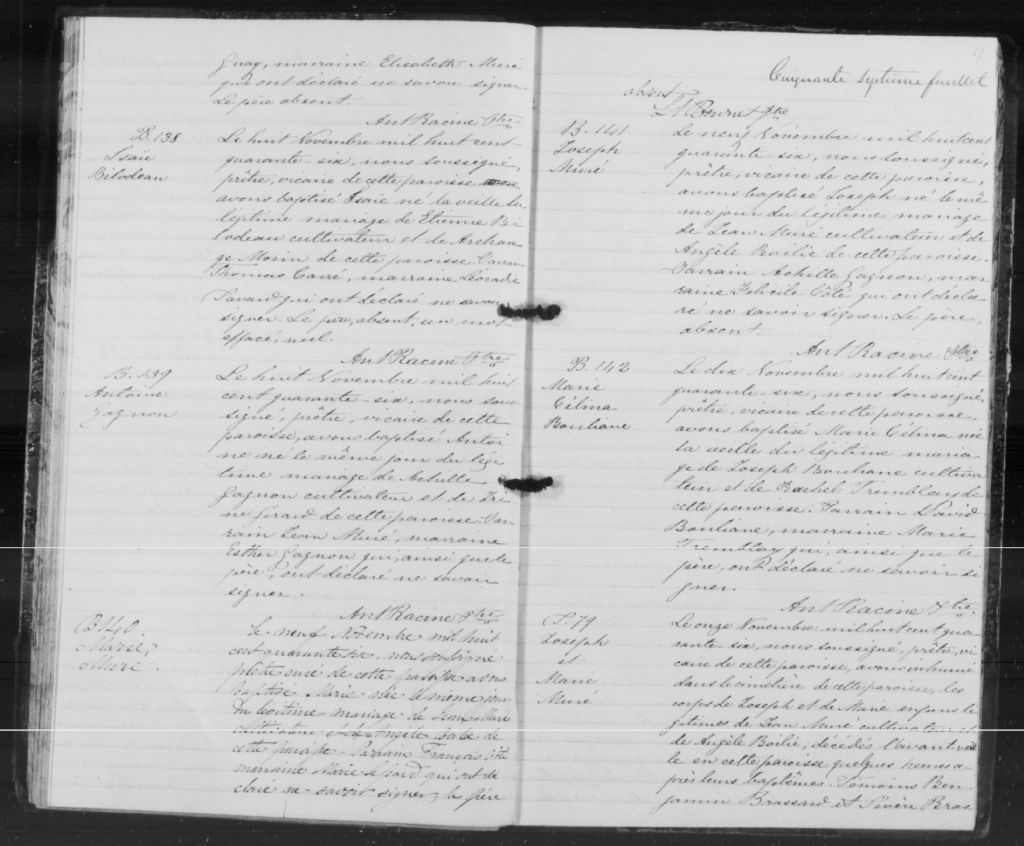 Guay, marraine Elisabeth Muré
qui ont déclaré ne savoir signer.
Le père absent.
Ant Racine Ptre
B. 138
Isaïe
Bilodeau
Le huit Novembre mil huit cent
quarante six, nous soussigné,
prêtre, vicaire de cette paroisse
avons baptisé Isaïe né la veille du
légitime mariage de Etienne Bi
lodeau cultivateur et de Archan
ge Morin de cette paroisse. Parrain
Thomas Carré, marraine Léocadie
Savard qui ont déclaré ne savoir
signer. Le père, absent, un mot
effacé, nul.
Ant Racine Ptre
B. 139
Antoine
Gagnon
Le huit Novembre mil huit
cent quarante-six, nous sous
signé, prêtre, vicaire de cette
paroisse, avons baptisé Antoi
ne né le même jour du légi
time mariage de Achille
Gagnon cultivateur et de Irè
ne Girard de cette paroisse. Par
rain Jean Muré, marraine
Esther Gagnon qui, ainsi que le
père, ont déclaré ne savoir
signer.
Ant Racine Ptre
B 140.
Marie
Muré
Le neuf Novembre mil huit
cent quarante six, nous soussigné
prêtre curé de cette paroisse avons
baptisé Marie née le même jour
du légitime mariage de Jean Muré
cultivateur & d'Angèle Boilie de
cette paroisse Parrain François Côté
marraine Marie Simard qui ont dé
claré ne savoir signer, le père
Cinquante Septième feuillet
absent
Ptre
B. 141
Joseph
Muré
Le neuf Novembre mil huit cent
quarante six, nous soussigné,
prêtre, vicaire de cette paroisse,
avons baptisé Joseph né le mê
me jour du légitime mariage
de Jean Muré cultivateur et de
Angèle Boilie de cette paroisse.
Parrain Achille Gagnon, mar
raine Félicité Côté qui ont décla
ré ne savoir signer. Le père,
absent.
Ant Racine Ptre
B. 142
Marie
Célima
Bouliane
Le dix Novembre mil huit cent
quarante-six, nous soussigné,
prêtre, vicaire de cette paroisse,
avons baptisé Marie Célima née
la veille du légitime maria
ge de Joseph Bouliane cultiva
teur et de Rachel Tremblay de
cette paroisse. Parrain David
Bouliane, marraine Marie
Tremblay qui, ainsi que le
père, ont déclaré ne savoir si
gner.
Ant Racine Ptre
S. 79
Joseph
et
Marie
Muré
Le onze Novembre mil huit cent qua
rante-six, nous soussigné, prêtre, vi
caire de cette paroisse, avons inhumé
dans le cimetière de cette paroisse, les
corps de Joseph et de Marie enfans lé
gitimes de Jean Muré cultivateur et
de Angèle Boilie, décédés l'avant-veil
le en cette paroisse quelques heures a
près leurs baptêmes. Témoins Ben
jamin Brassard et Sévère Bras